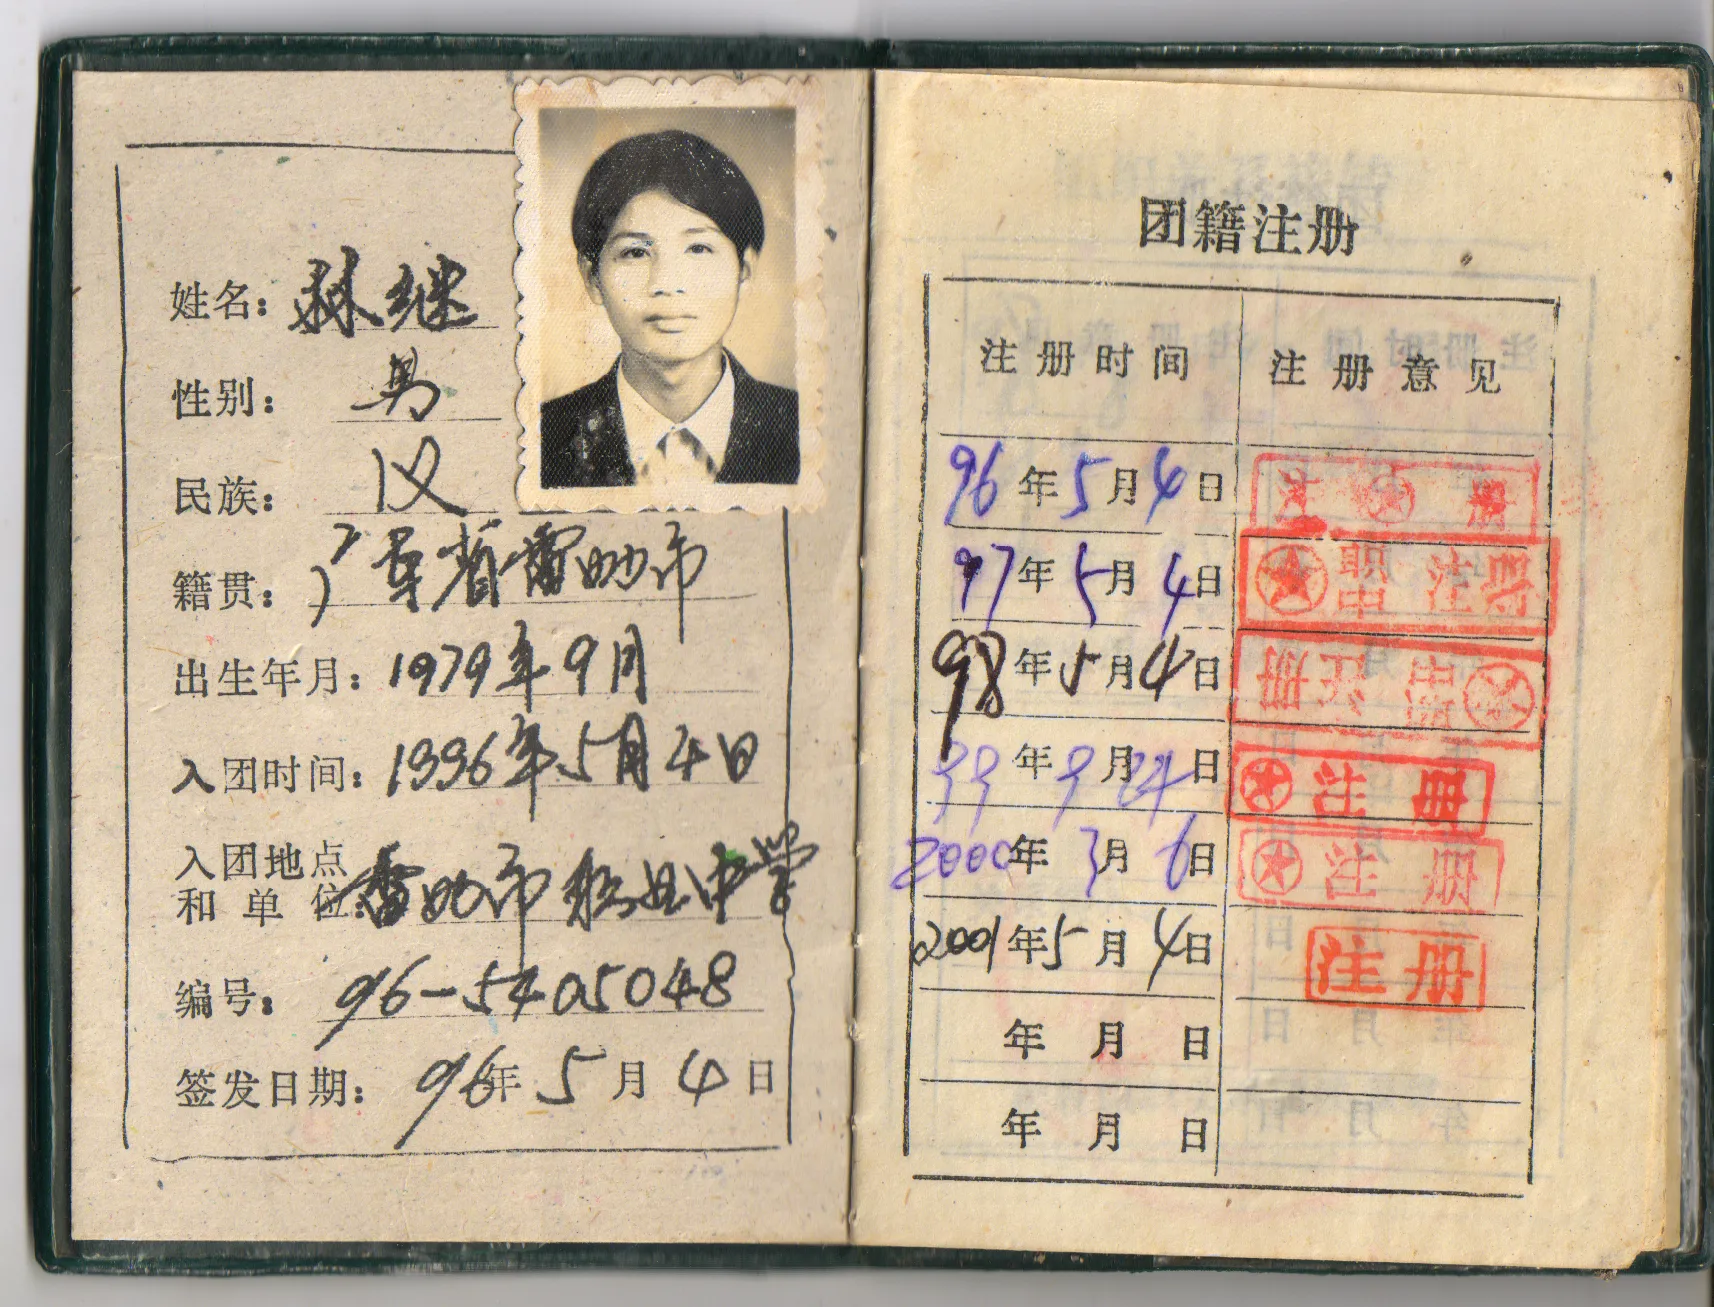 姓名：林继
性别：男
民族：汉
籍贯：广东省雷州市
出生年月：1979年9月
入团时间：1996年5月4日
入团地点
和单位：雷州市职业中学
编号：96-5405048
签发日期：96年5月4日
团籍注册
注册时间 注册意见
96年5月4日 注册
97年5月4日 职中 注册
98年5月4日 职中 注册
99年9月24日 注册
2000年3月6日 注册
2001年5月4日 注册
年 月 日
年 月 日